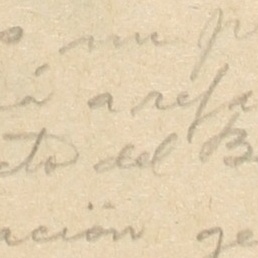 o me p
rá a refe
cto del B
ación ge